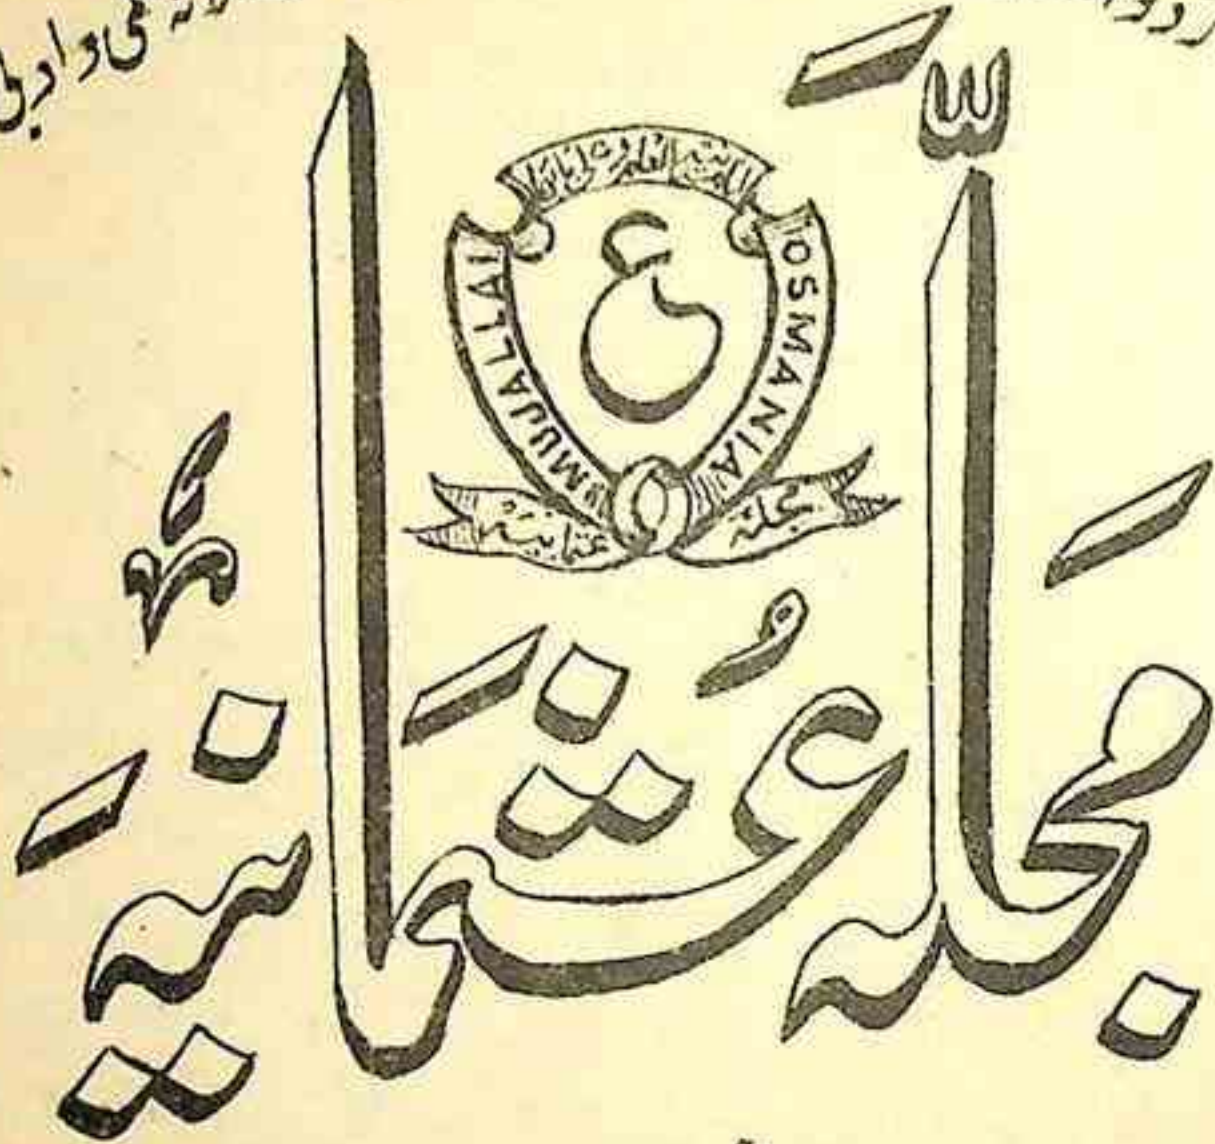 وادبی
MUJALLAI OSMANIA
مجلّہ عثمانیہ
مَجَلّہ عُثمَانیَہ